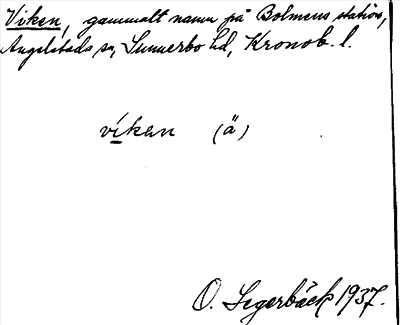 Viken, gammalt namn på Bolmens station,
Angelstads sn, Sunnerbo hd, Kronob. l.
víken (ä)
O. Segerbäck 1937.